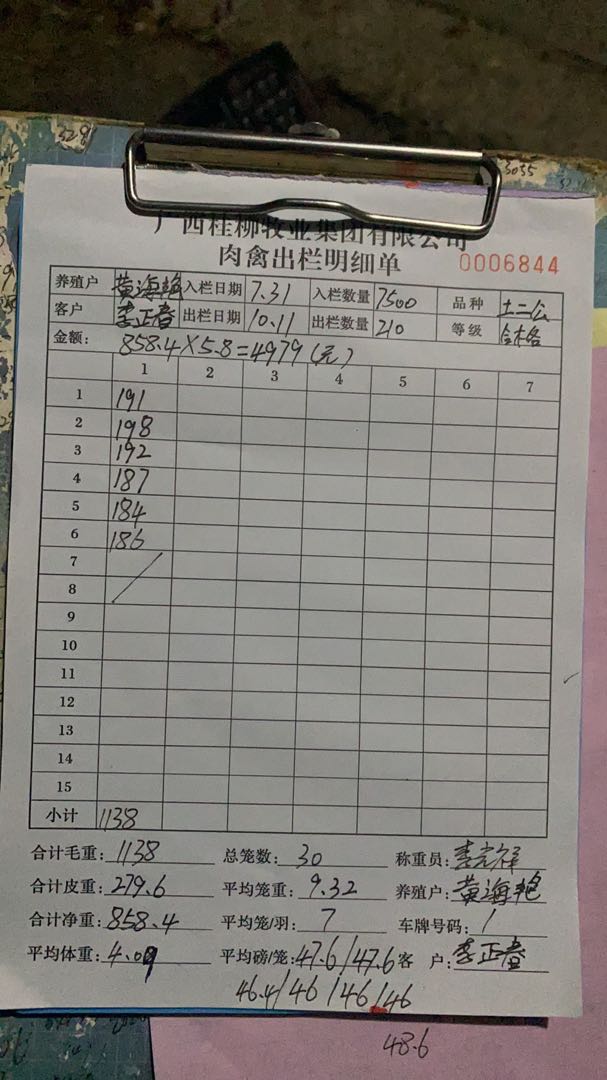 328
3055
广西桂柳牧业集团有限公司
肉禽出栏明细单 0006844
养殖户 黄海艳 入栏日期 7.31 入栏数量 7500 品种 土二公
客户 李正春 出栏日期 10.11 出栏数量 210 等级 合格
金额: 858.4×5.8=4979(元)
1 2 3 4 5 6 7
1 191
2 198
3 192
4 187
5 184
6 186
7
8
9
10
11
12
13
14
15
小计 1138
合计毛重: 1138 总笼数: 30 称重员:
合计皮重: 279.6 平均笼重: 9.32 养殖户: 黄海艳
合计净重: 858.4 平均笼/羽: 7 车牌号码: /
平均体重: 4.09 平均磅/笼: 47.6/47.6 客 户: 李正春
46.4/46/46/46
48.6